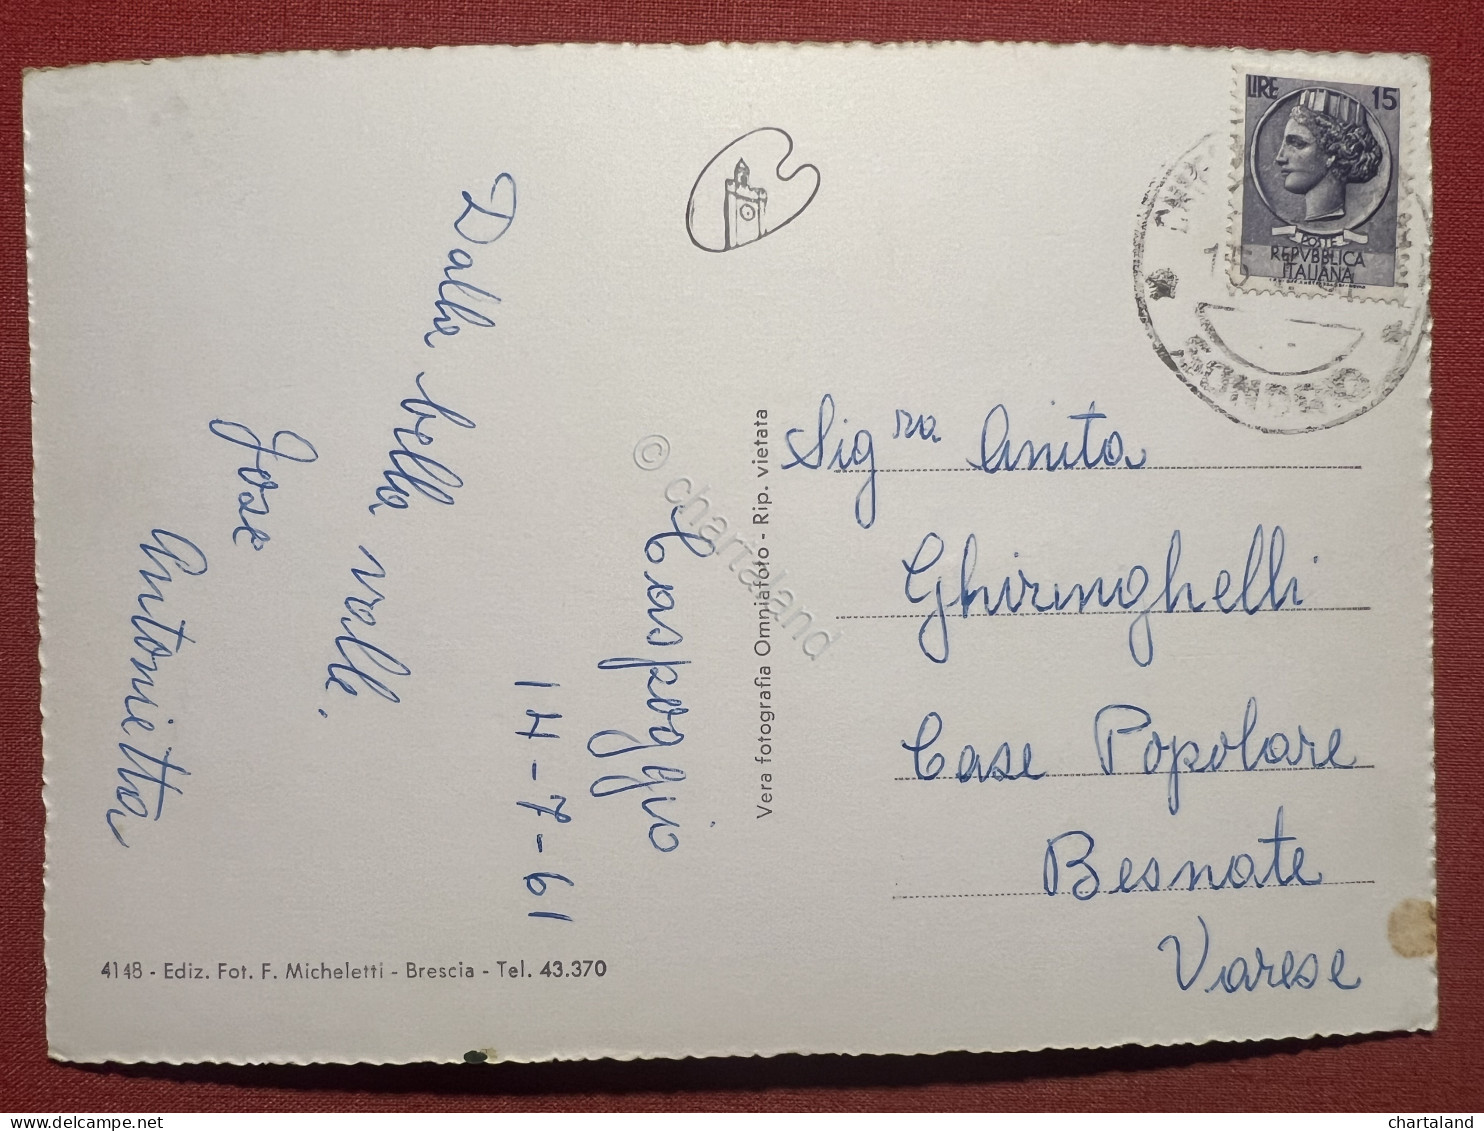 Caspoggio
14-7-61
Dalla bella valle.
Jose
Antonietta
4148 - Ediz. Fot. F. Micheletti - Brescia - Tel. 43.370
Vera fotografia Omniafoto - Rip. vietata
© chartaland
LIRE 15
POSTE
REPVBBLICA
ITALIANA
SONDRIO
Sig ra Anita
Ghiringhelli
Case Popolare
Besnate
Varese
chartaland